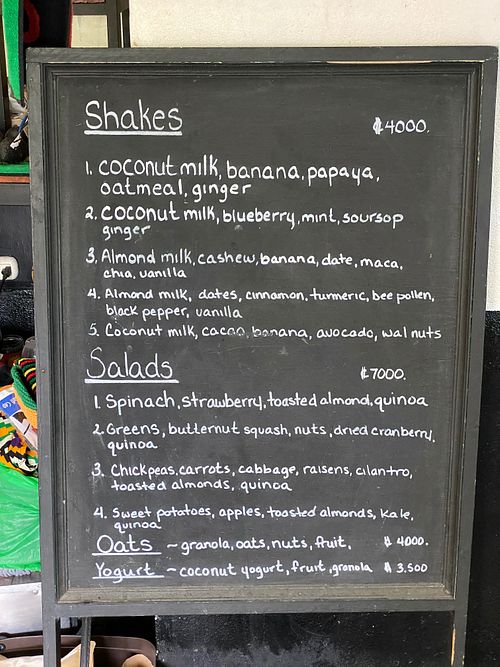 Shakes ₡4000.
1. coconut milk, banana, papaya,
oatmeal, ginger
2. coconut milk, blueberry, mint, soursop
ginger
3. Almond milk, cashew, banana, date, maca,
chia, vanilla
4. Almond milk, dates, cinnamon, turmeric, bee pollen,
black pepper, vanilla
5. Coconut milk, cacao, banana, avocado, walnuts
Salads ₡7000.
1. Spinach, strawberry, toasted almond, quinoa
2. Greens, butternut squash, nuts, dried cranberry,
quinoa
3. Chickpeas, carrots, cabbage, raisens, cilantro,
toasted almonds, quinoa
4. Sweet potatoes, apples, toasted almonds, kale,
quinoa
Oats ~ granola, oats, nuts, fruit, ₡ 4000.
Yogurt ~ coconut yogurt, fruit, granola ₡ 3.500